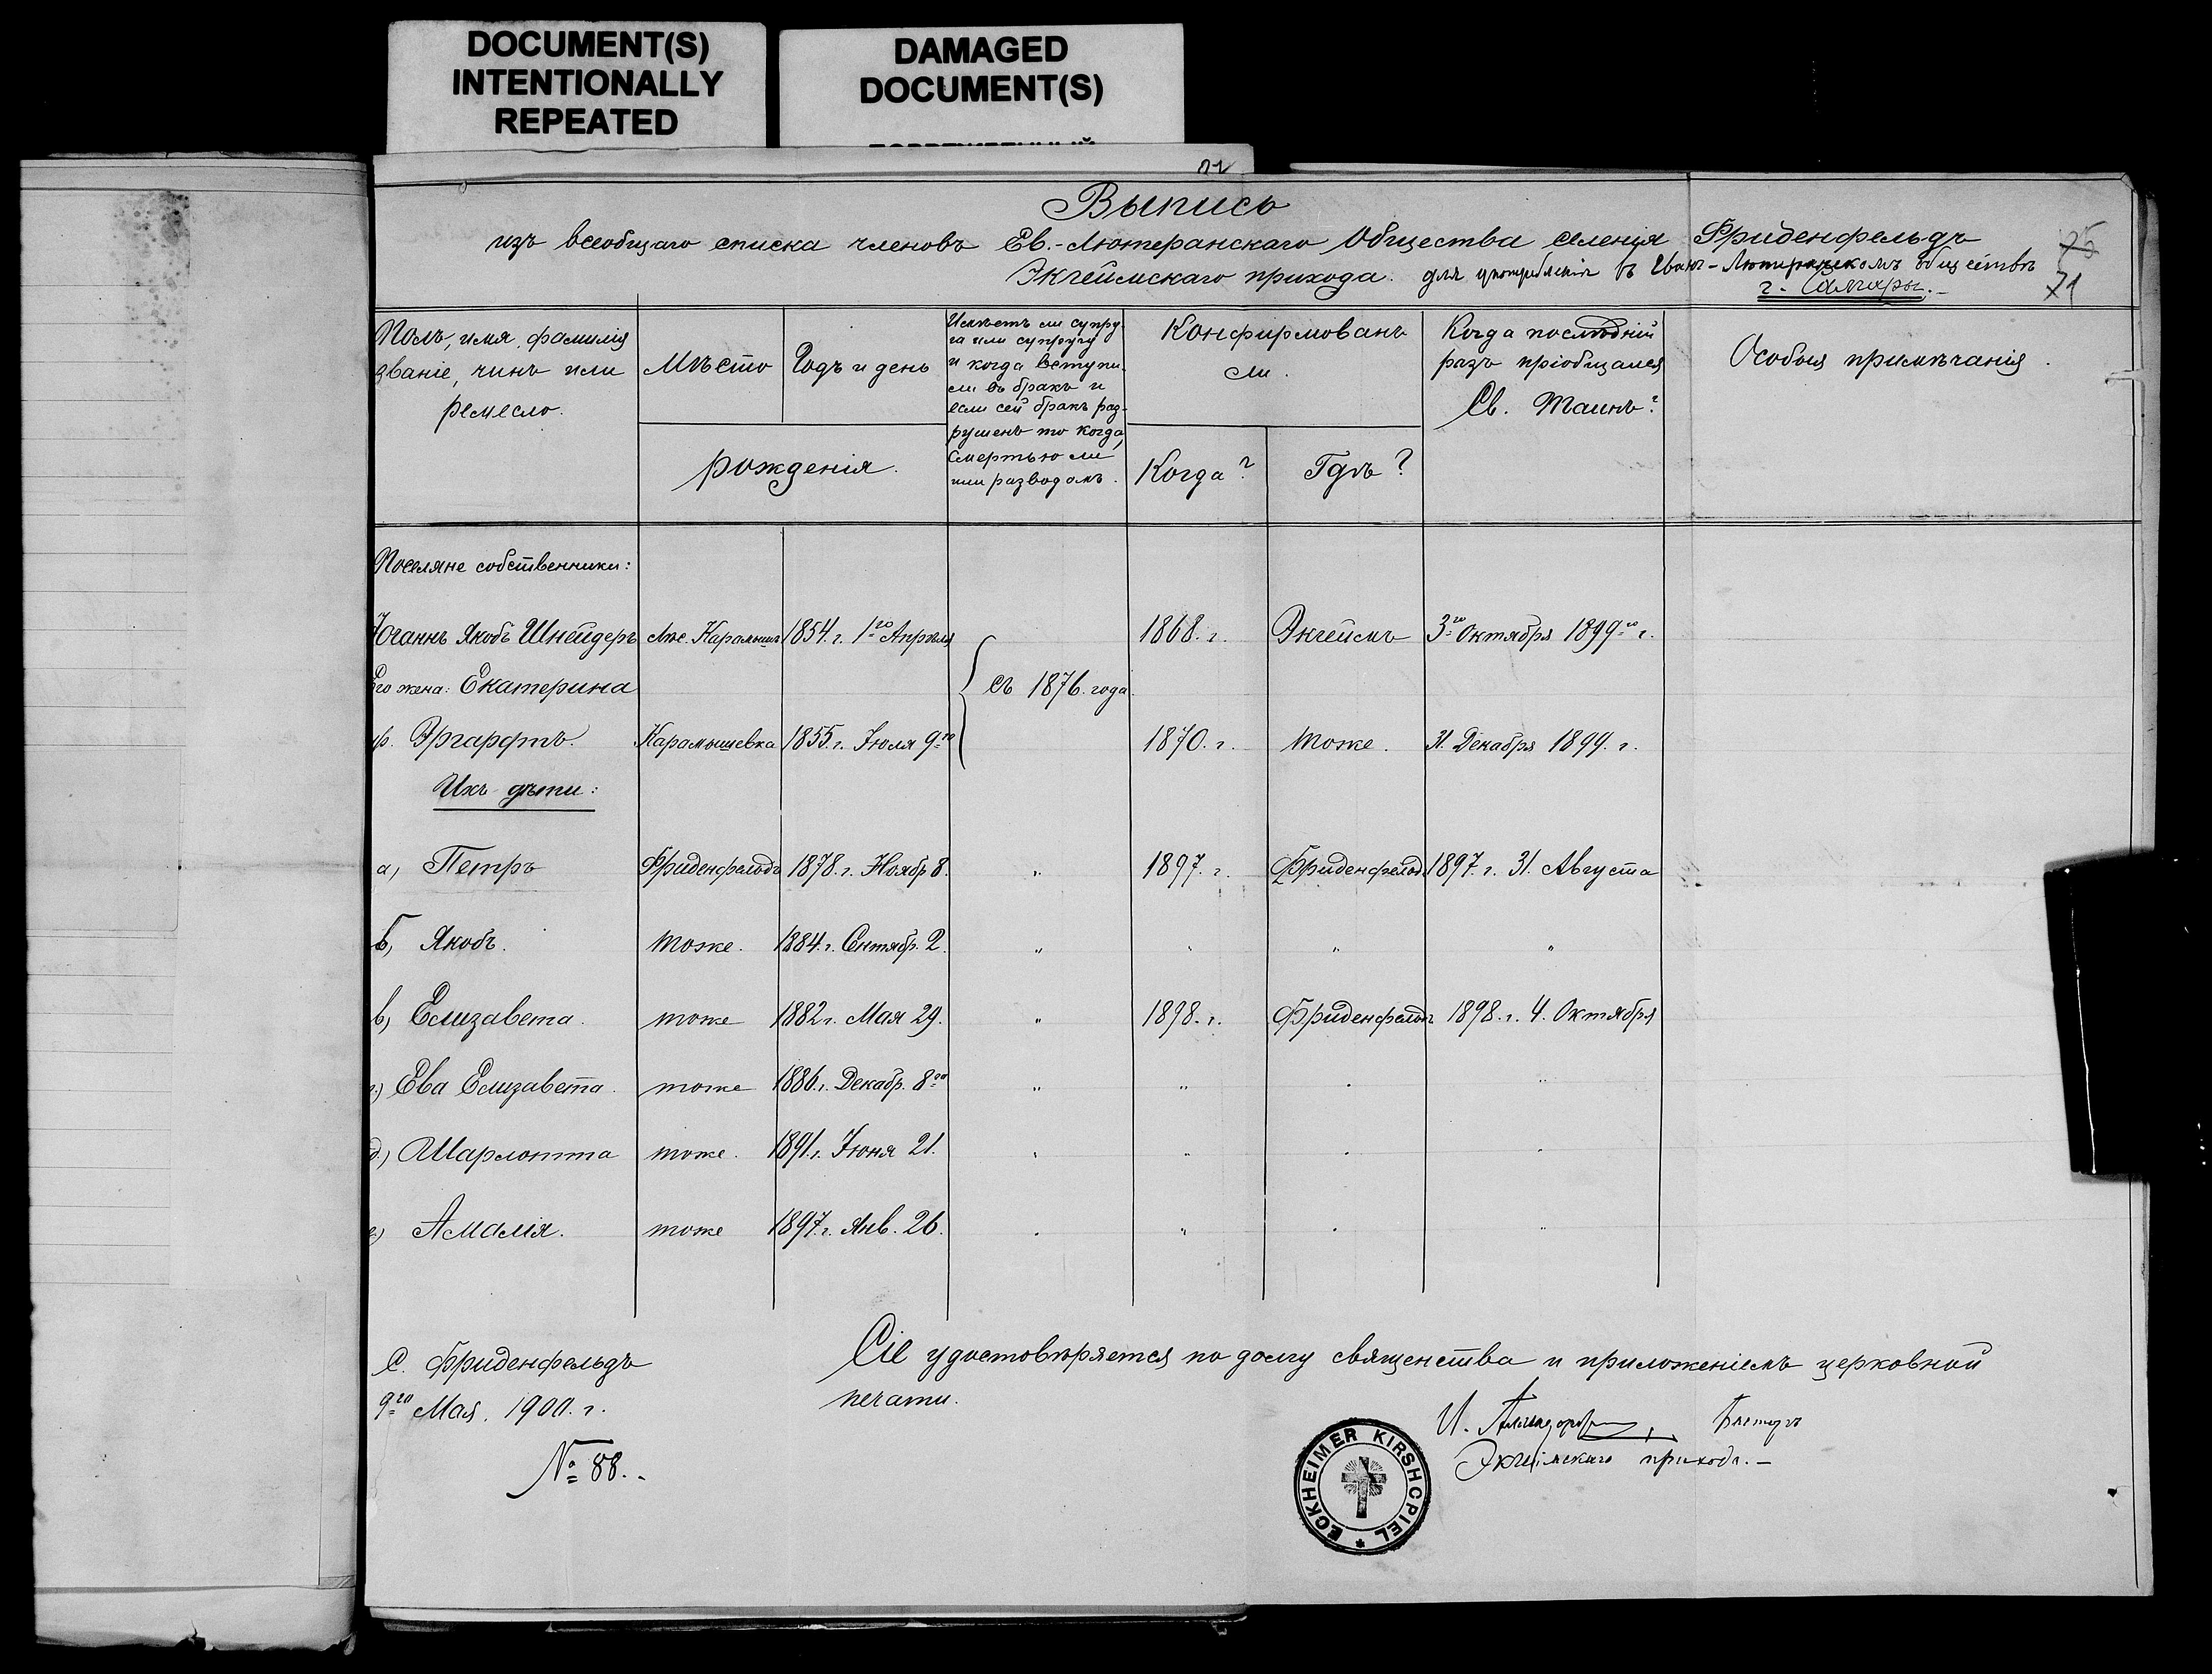 DOCUMENT(S)
INTENTIONALLY
REPEATED
DAMAGED
DOCUMENT(S)
Выпись
изъ всеобщаго списка членовъ Ев.-Лютеранскаго Общества селенія Фриденфельдъ
Экгеймскаго прихода. для употребленія въ Еванг-Лютеранскомъ обществѣ
г. Самары.-
71
Полъ, имя, фамилія
званіе, чинъ или
ремесло.
Мѣсто
Годъ и день
рожденія.
Имѣетъ ли супру-
га или супругу
и когда вступи-
ли въ бракъ и
если сей бракъ раз-
рушенъ то когда,
смертью ли
или разводомъ.
Конфирмованъ
ли.
Когда?
Гдѣ?
Когда послѣдній
разъ пріобщался
Св. Таинъ?
Особыя примѣчанія.
Поселяне собственники:
Іоганнъ Якобъ Шнейдеръ Лѣс. Карамышъ 1854. г. 1го Апрѣля 1868. г. Экгеймъ 3го Октября 1899го г.
Его жена: Екатерина съ 1876. года.
ур. Эргардтъ. Карамышевка 1855. г. Іюля 9го 1870. г. тоже. 31. Декабря 1899. г.
Ихъ дѣти:
а, Петръ Фриденфельдъ 1878. г. Ноябр 8. " 1897. г. Фриденфельд. 1897. г. 31. Августа
б, Якобъ. тоже. 1884. г. Сентябр. 2. " " " "
в, Елизавета. тоже 1882 г. Мая 29. " 1898. г. Фриденфельдъ 1898. г. 4. Октября
г.) Ева Елизавета. тоже 1886. г. Декабр. 8го " " " "
д.) Шарлотта тоже. 1891. г. Іюня 21. " " " "
е) Амалія. тоже 1897. г. Янв. 26. " " " "
С. Фриденфельдъ
9го Мая. 1900. г.
№ 88.
Сіе удостовѣряется по долгу священства и приложеніемъ церковной
печати.
И. Пастуръ
Экгеймскаго прихода.-
ECKHEIMER KIRSHCPIEL *